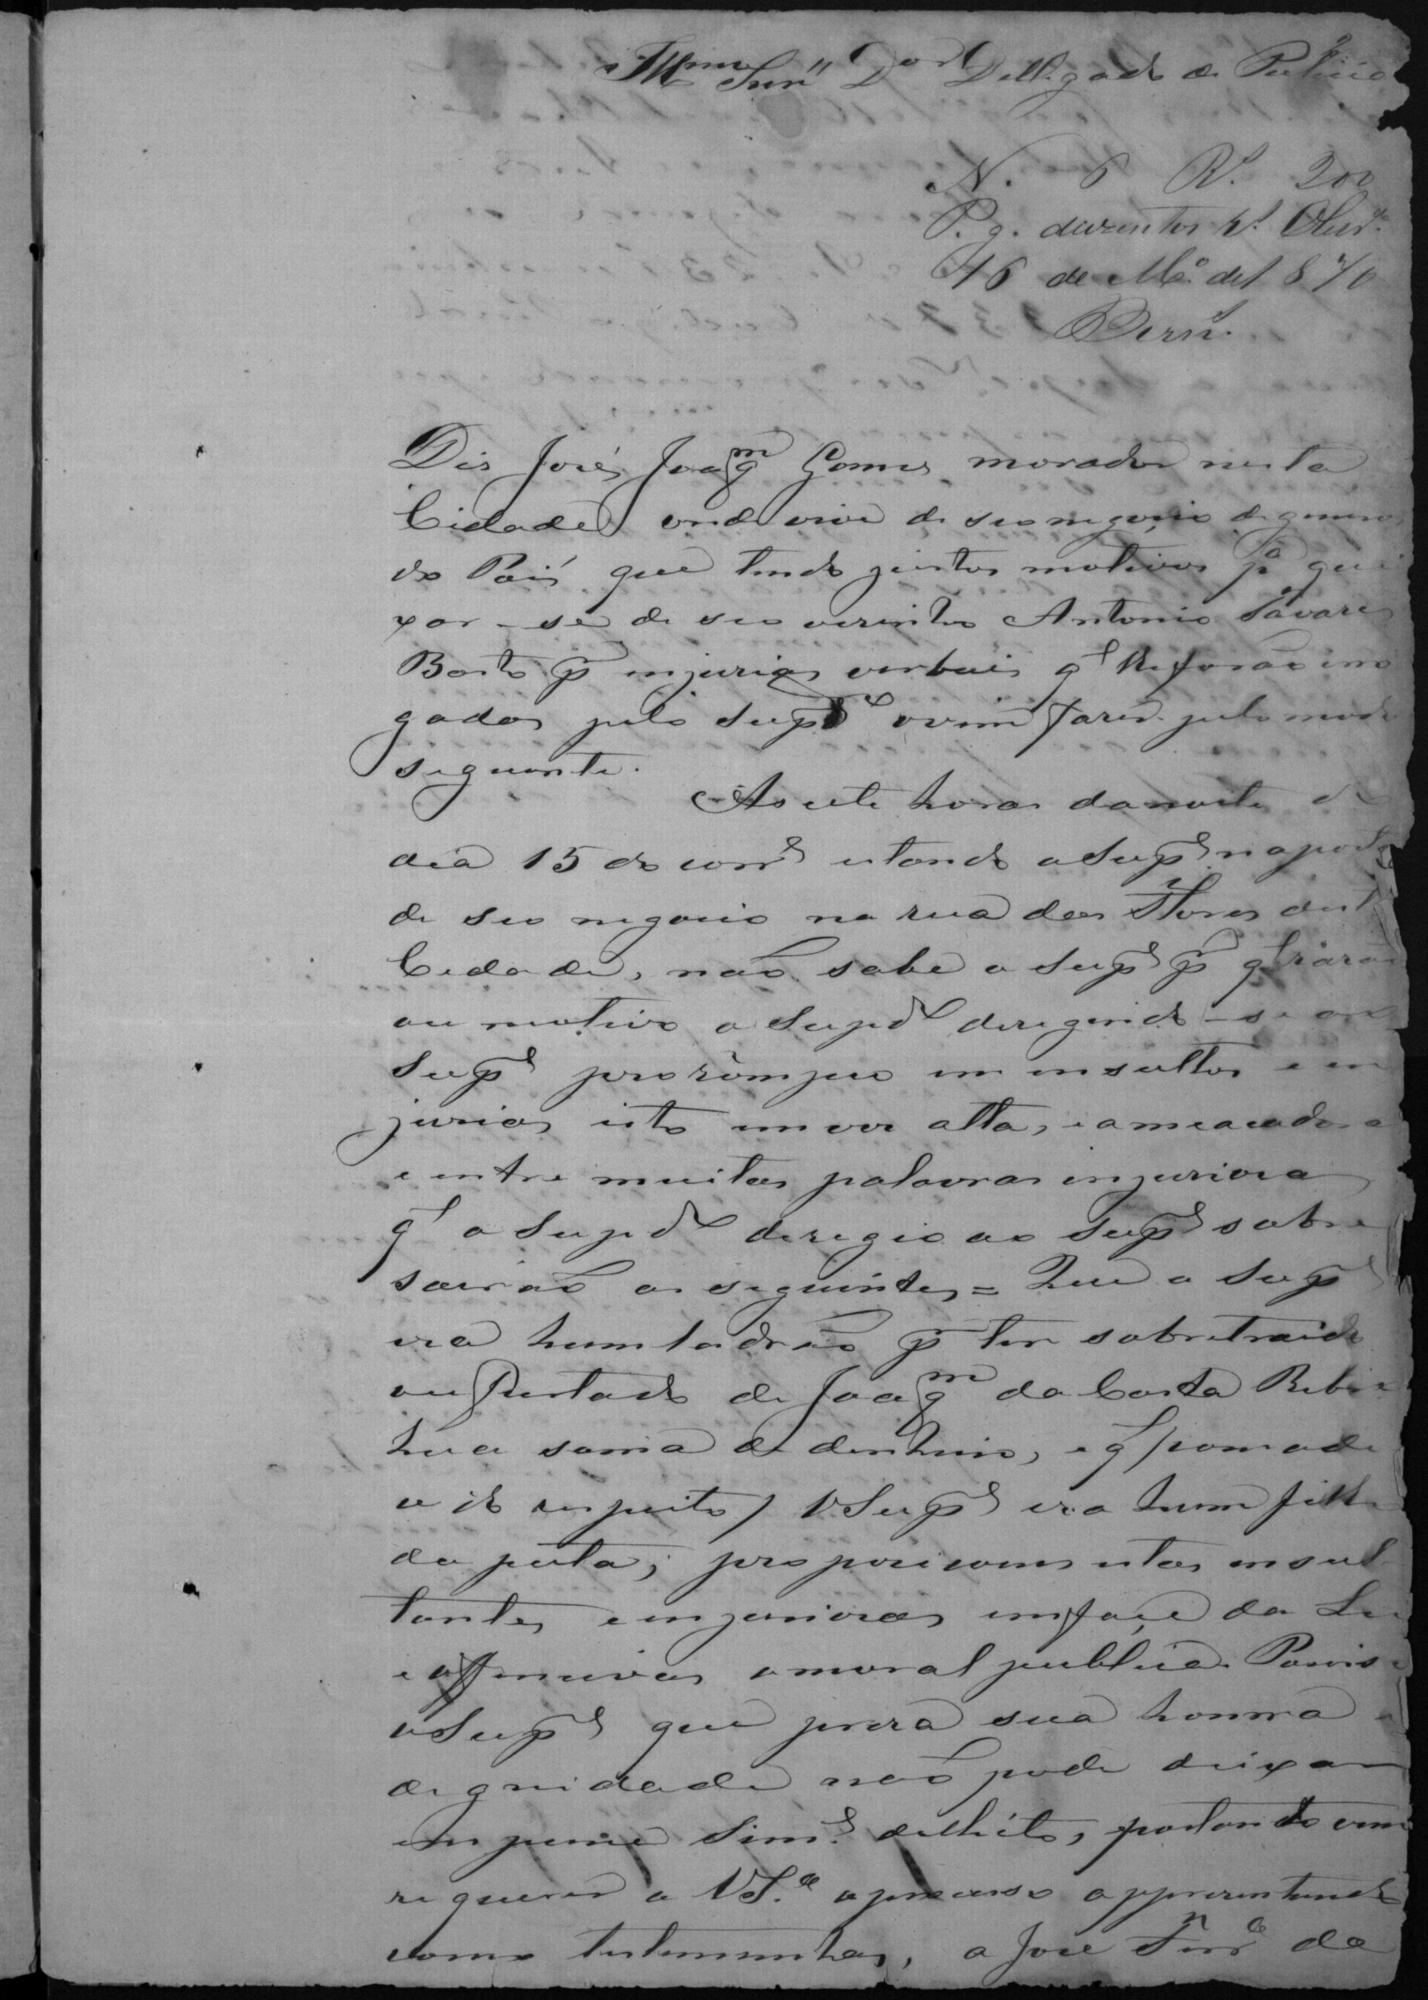 Illmo Snr Dor Dellegado de Policia
N. 6 Rs. 200
P. g. duzentos rs.
16 de Mço de 1870
Dis José Joaqm Gomes morador nesta
Cidade onde vive de seo negocio de generos
do Pais que tendo justos motivos pa quei
xar-se de seo vizinho Antonio Tavares
Basto pr injurias verbais qe lhe forão irro
gadas pelo Supdo o vem fazer pelo modo
seguinte.
As sete horas da noite do
dia 15 do corre estando o Supe na porta
de seo negocio na rua das Flores desta
Cidade, não sabe o Supe pr qe razão
ou motivo o Supdo deregindo-se ao
Supe prorompeo em insultos e in
jurias isto em vos alta, e ameacadora
e entre muitas palavras injuriosas
qe o Supdo deregio ao Supe sobre
sairão as seguintes = Que o Supe
era hum ladrão pr ter sobretraido
ou furtado de Joaqm da Costa
hua soma de dinheiro, e qe
o Supe era hum filho
da puta; proposicoens estas insul
tantes e injuriosas em face da Lei
e offencivas a moral publica. Pois
o Supe que preza sua honra e
dignidade não pode deixar
impune Sime dellicto, portanto vem
requerer a VSa o processo apprezentando
como testemunhas, a Jose da